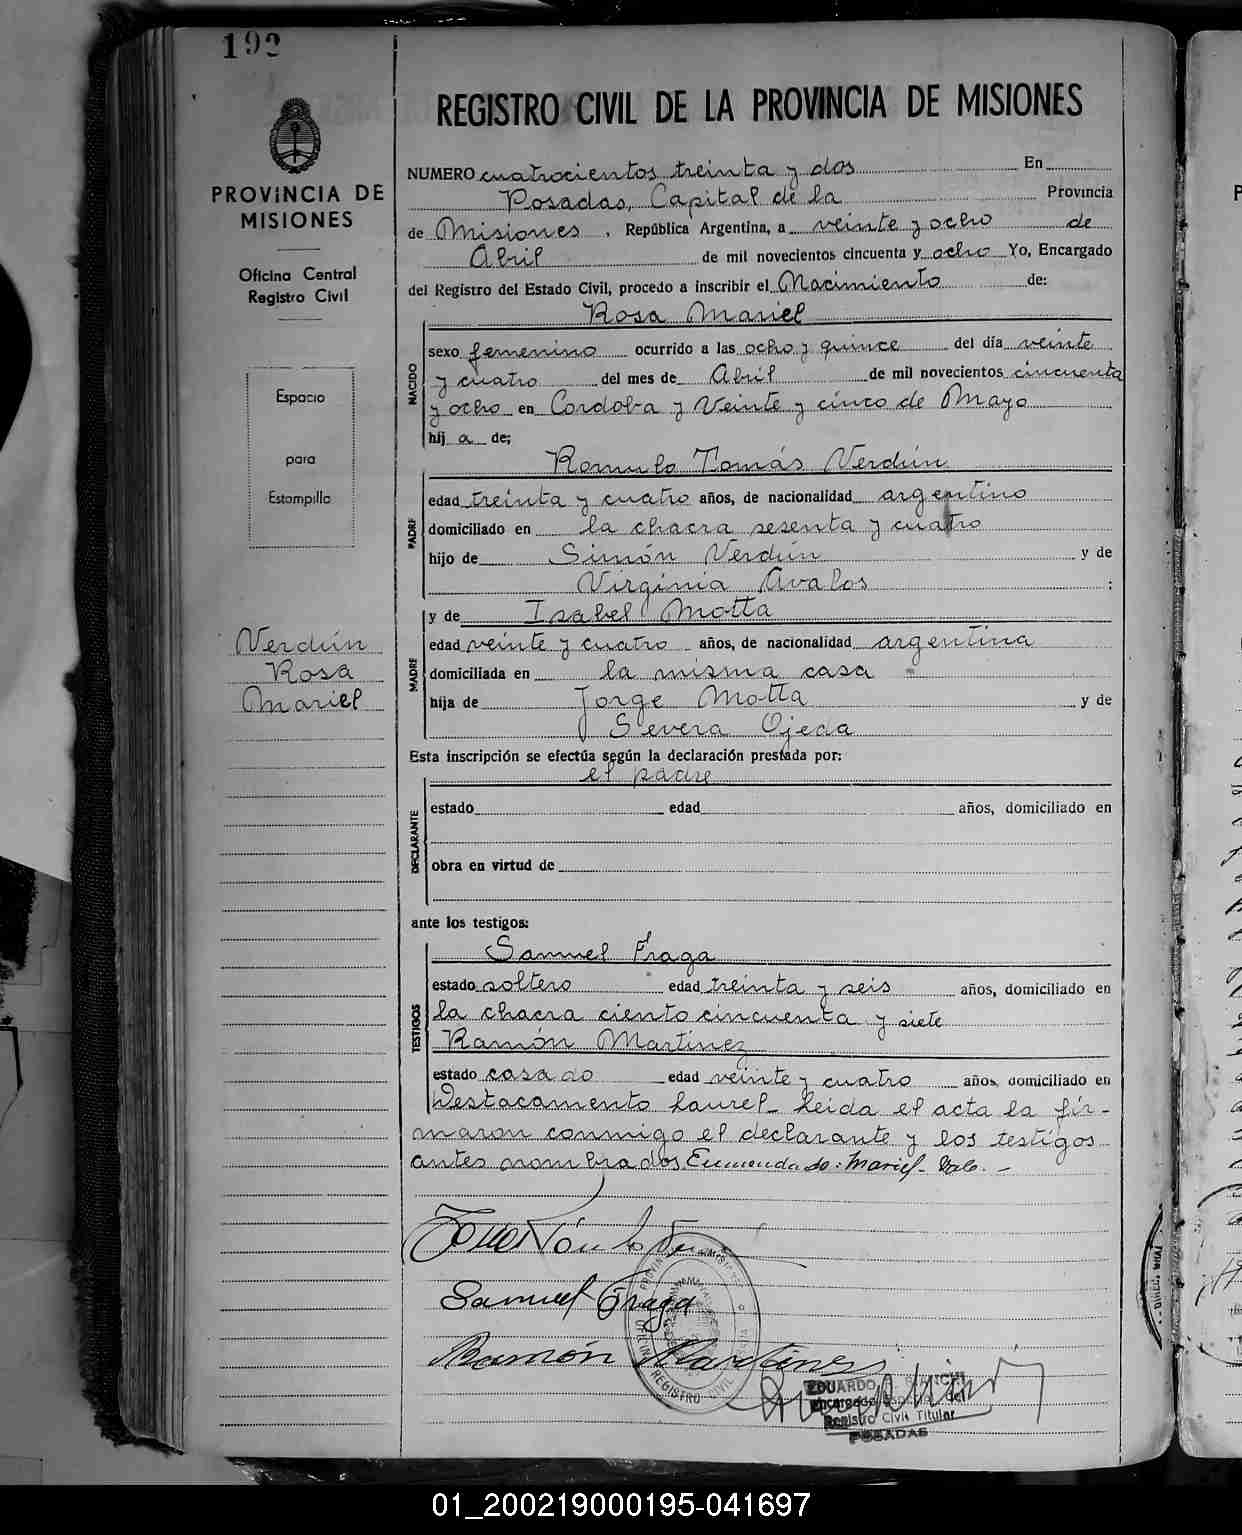 192
PROVINCIA DE
MISIONES
Oficina Central
Registro Civil
Espacio
para
Estampilla
Verdún
Rosa
Mariel
REGISTRO CIVIL DE LA PROVINCIA DE MISIONES
NUMERO cuatrocientos treinta y dos En
Posadas, Capital de la Provincia
de Misiones, República Argentina, a veinte y ocho de
Abril de mil novecientos cincuenta y ocho Yo, Encargado
del Registro del Estado Civil, procedo a inscribir el Nacimiento de:
Rosa Mariel
NACIDO
sexo femenino ocurrido a las ocho y quince del día veinte
y cuatro del mes de Abril de mil novecientos cincuenta
y ocho en Cordoba y Veinte y cinco de Mayo
hij a de;
Romulo Tomás Verdún
PADRE
edad treinta y cuatro años, de nacionalidad argentino
domiciliado en la chacra sesenta y cuatro
hijo de Simón Verdún y de
Virginia Avalos :
y de Isabel Motta
MADRE
edad veinte y cuatro años, de nacionalidad argentina
domiciliada en la misma casa
hija de Jorge Motta y de
Severa Ojeda
Esta inscripción se efectúa según la declaración prestada por:
el padre
DECLARANTE
estado edad años, domiciliado en
obra en virtud de
ante los testigos:
Samuel Fraga
TESTIGOS
estado soltero edad treinta y seis años, domiciliado en
la chacra ciento cincuenta y siete
Ramón Martinez
estado casado edad veinte y cuatro años, domiciliado en
Destacamento Laurel_ Leida el acta la fir-
maron conmigo el declarante y los testigos
antes nombrados Enmendado: Mariel. Vale. -
Samuel Fraga
Ramón Martinez
REGISTRO CIVIL
EDUARDO
Registro Civil Titular
POSADAS
01_200219000195-041697